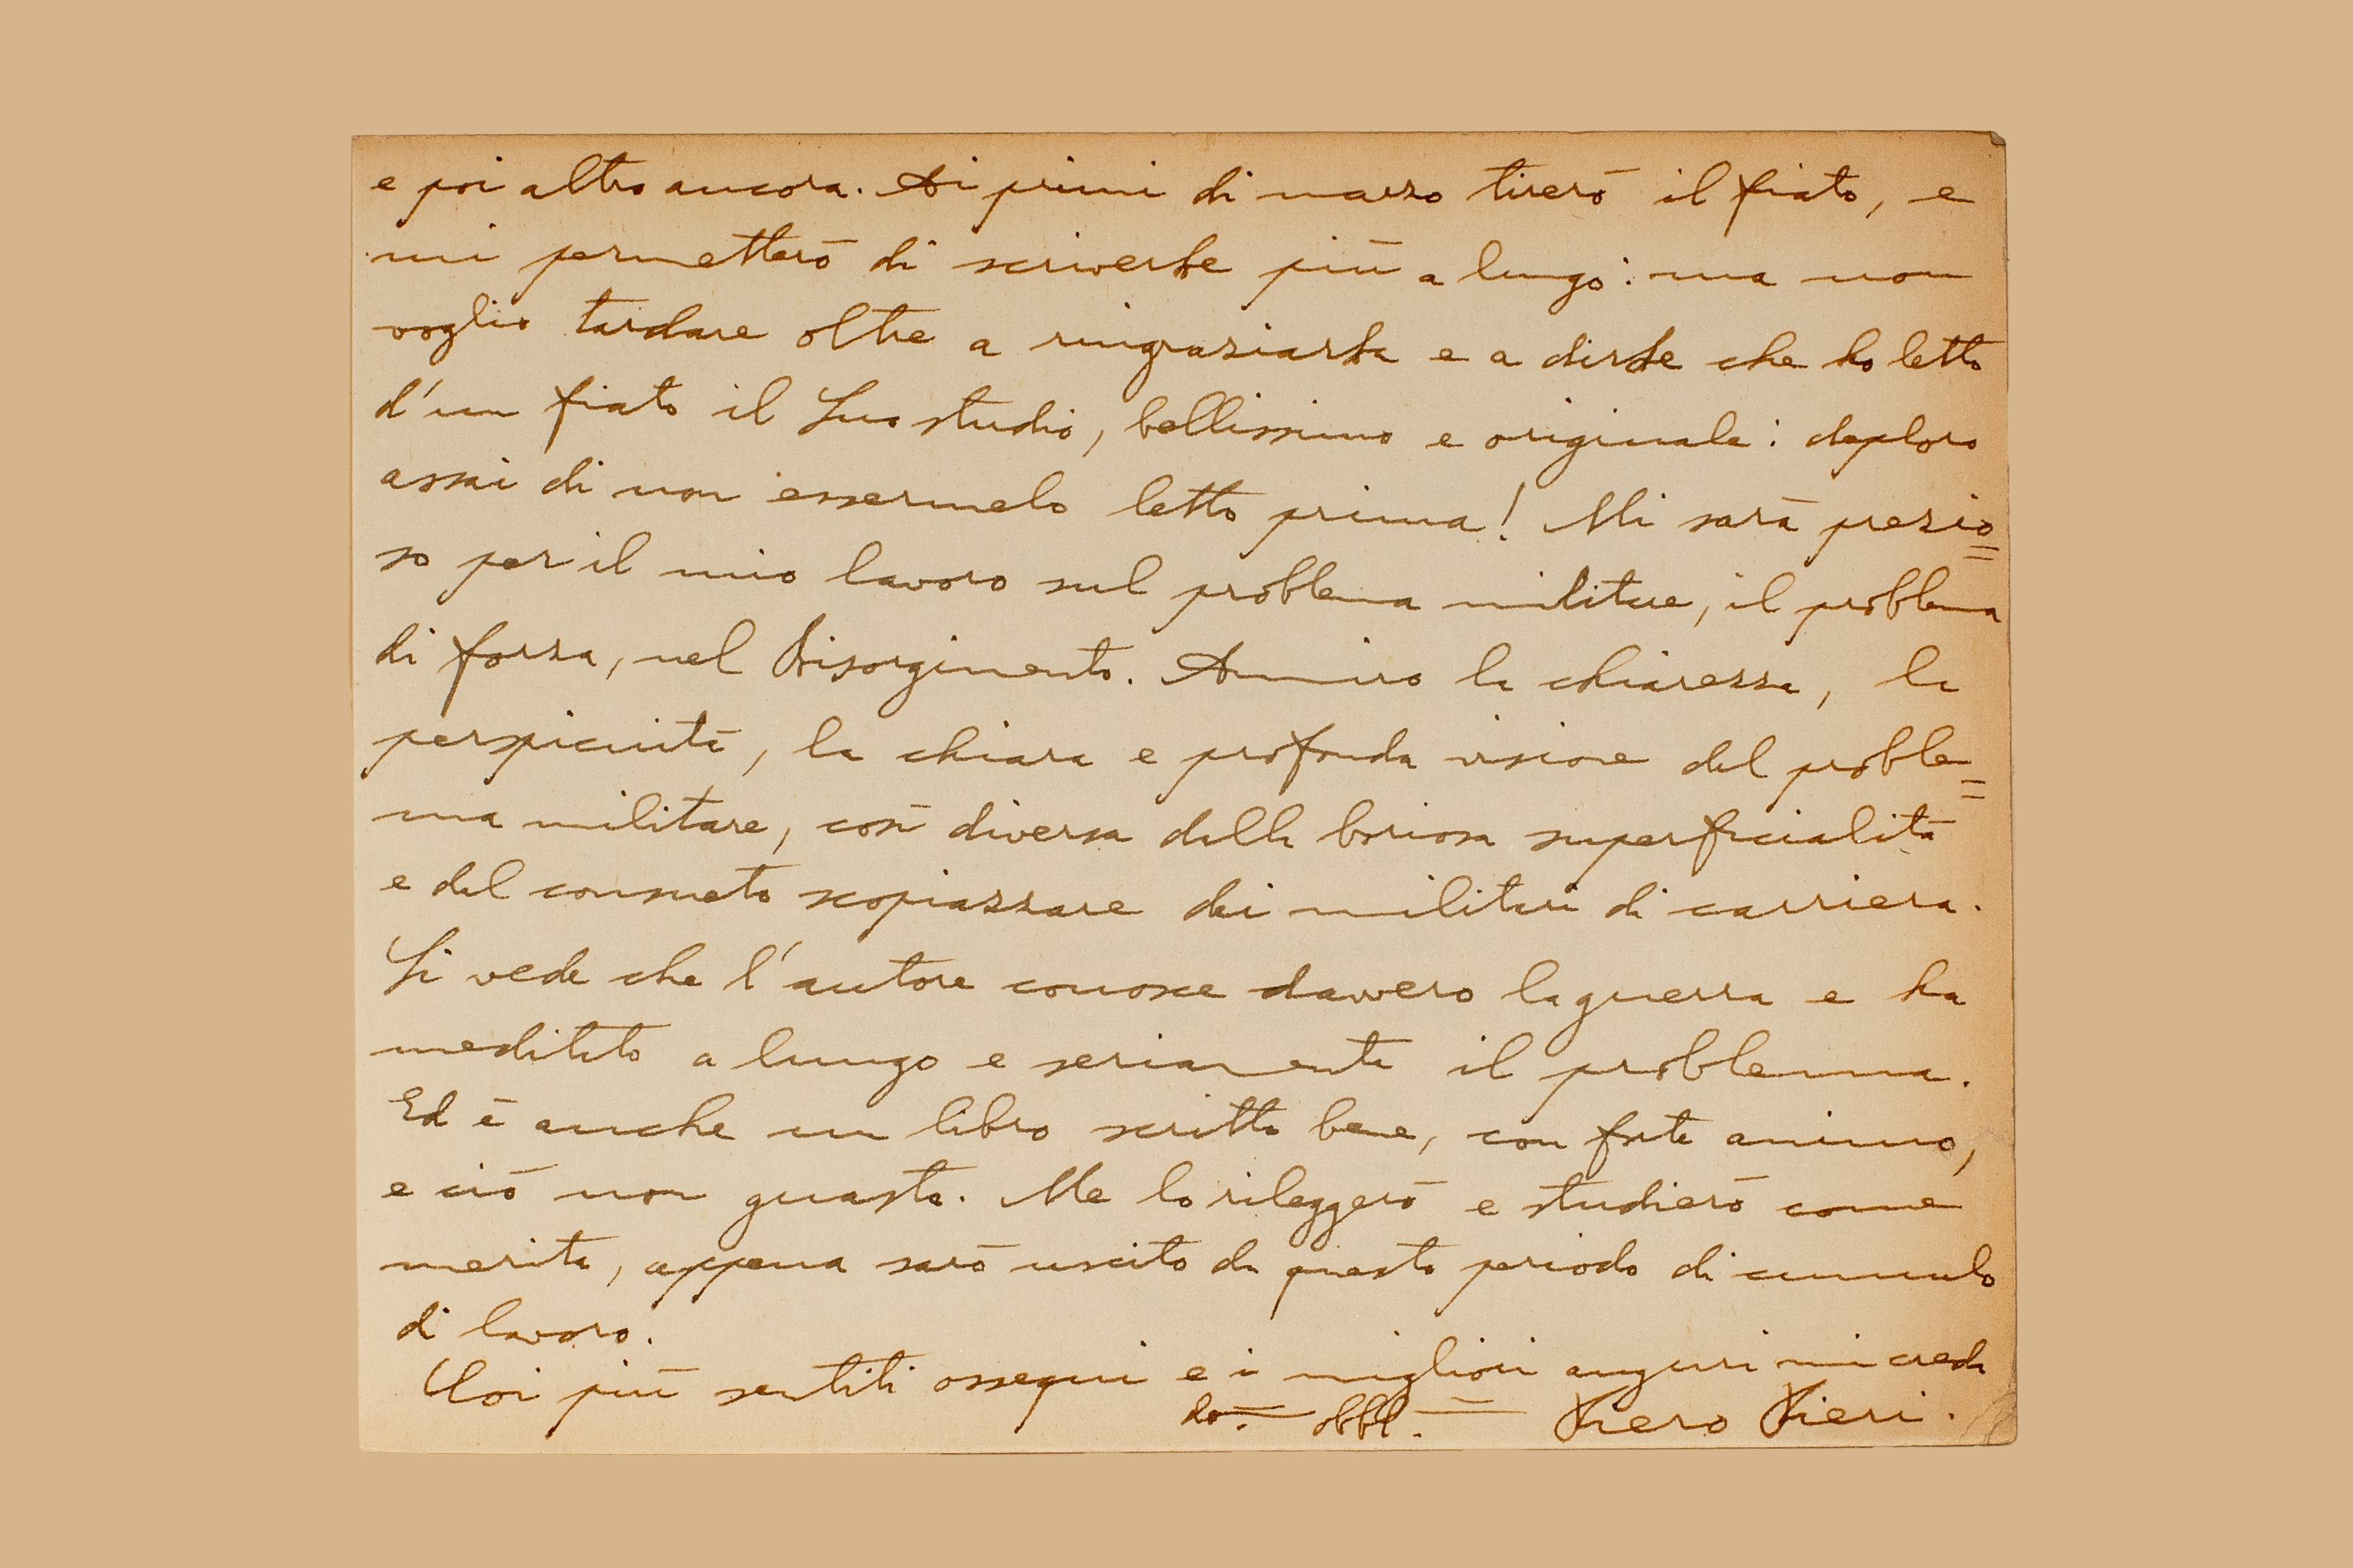 e poi altro ancora. Ai primi di marzo tirerò il fiato, e
mi permetterò di scriverLe più a lungo: ma non
voglio tardare oltre a ringraziarLa e a dirLe che ho letto
d'un fiato il Suo studio, bellissimo e originale: deploro
assai di non essermelo letto prima! Mi sarà prezio=
so per il mio lavoro sul problema militare, il problema
di forza, nel Risorgimento. Ammiro la chiarezza, la
perspicuità, la chiara e profonda visione del proble=
ma militare, così diversa dalla boriosa superficialità
e dal consueto scopiazzare dei militari di carriera.
Si vede che l'autore conosce davvero la guerra e ha
meditato a lungo e seriamente il problemma.
Ed è anche un libro scritto bene, con forte animo,
e ciò non guasta. Me lo rileggerò e studierò come
merita, appena sarò uscito da questo periodo di cumulo
di lavoro.
Coi più sentiti ossequi e i migliori auguri mi creda
obbl. Piero Pieri.